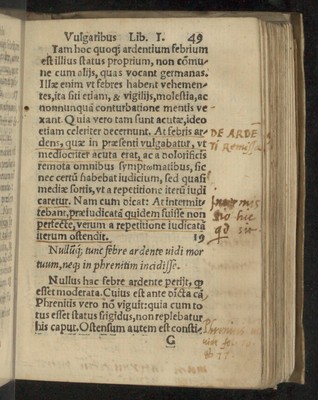 Vulgaribus Lib. I. 49
Iam hoc quoqꝫ ardentium febrium
est illius status proprium, non cōmu-
ne cum alijs, quas vocant germanas.
Illæ enim vt febres habent vehemen-
tes, ita siti etiam, & vigilijs, molestia, ac
nonnunquā conturbatione mentis ve
xant. Quia vero tam sunt acutæ, ideo
etiam celeriter decernunt. At febris ar-
dens, quæ in præsenti vulgabatur, vt
mediocriter acuta erat, ac a dolorificis
remota omnibus symptomatibus, sic
nec certū habebat iudicium, sed quasi
mediæ sortis, vt a repetitione iterū iudi
caretur. Nam cum dicat: At intermit-
tebant, præiudicatā quidem fuisse non
perfecte, verum a repetitione iudicatā
iterum ostendit. 19
Nullūqꝫ tunc febre ardente uidi mor
tuum, neqꝫ in phrenitim incidisse.
Nullus hac febre ardente perijt, ꝙ
esset moderata. Cuius est ante dicta cā
Phrenitis vero nō viguit: quia cum to
tus esset status frigidus, non replebatur
his caput. Ostensum autem est consti-
G
DE ARDE